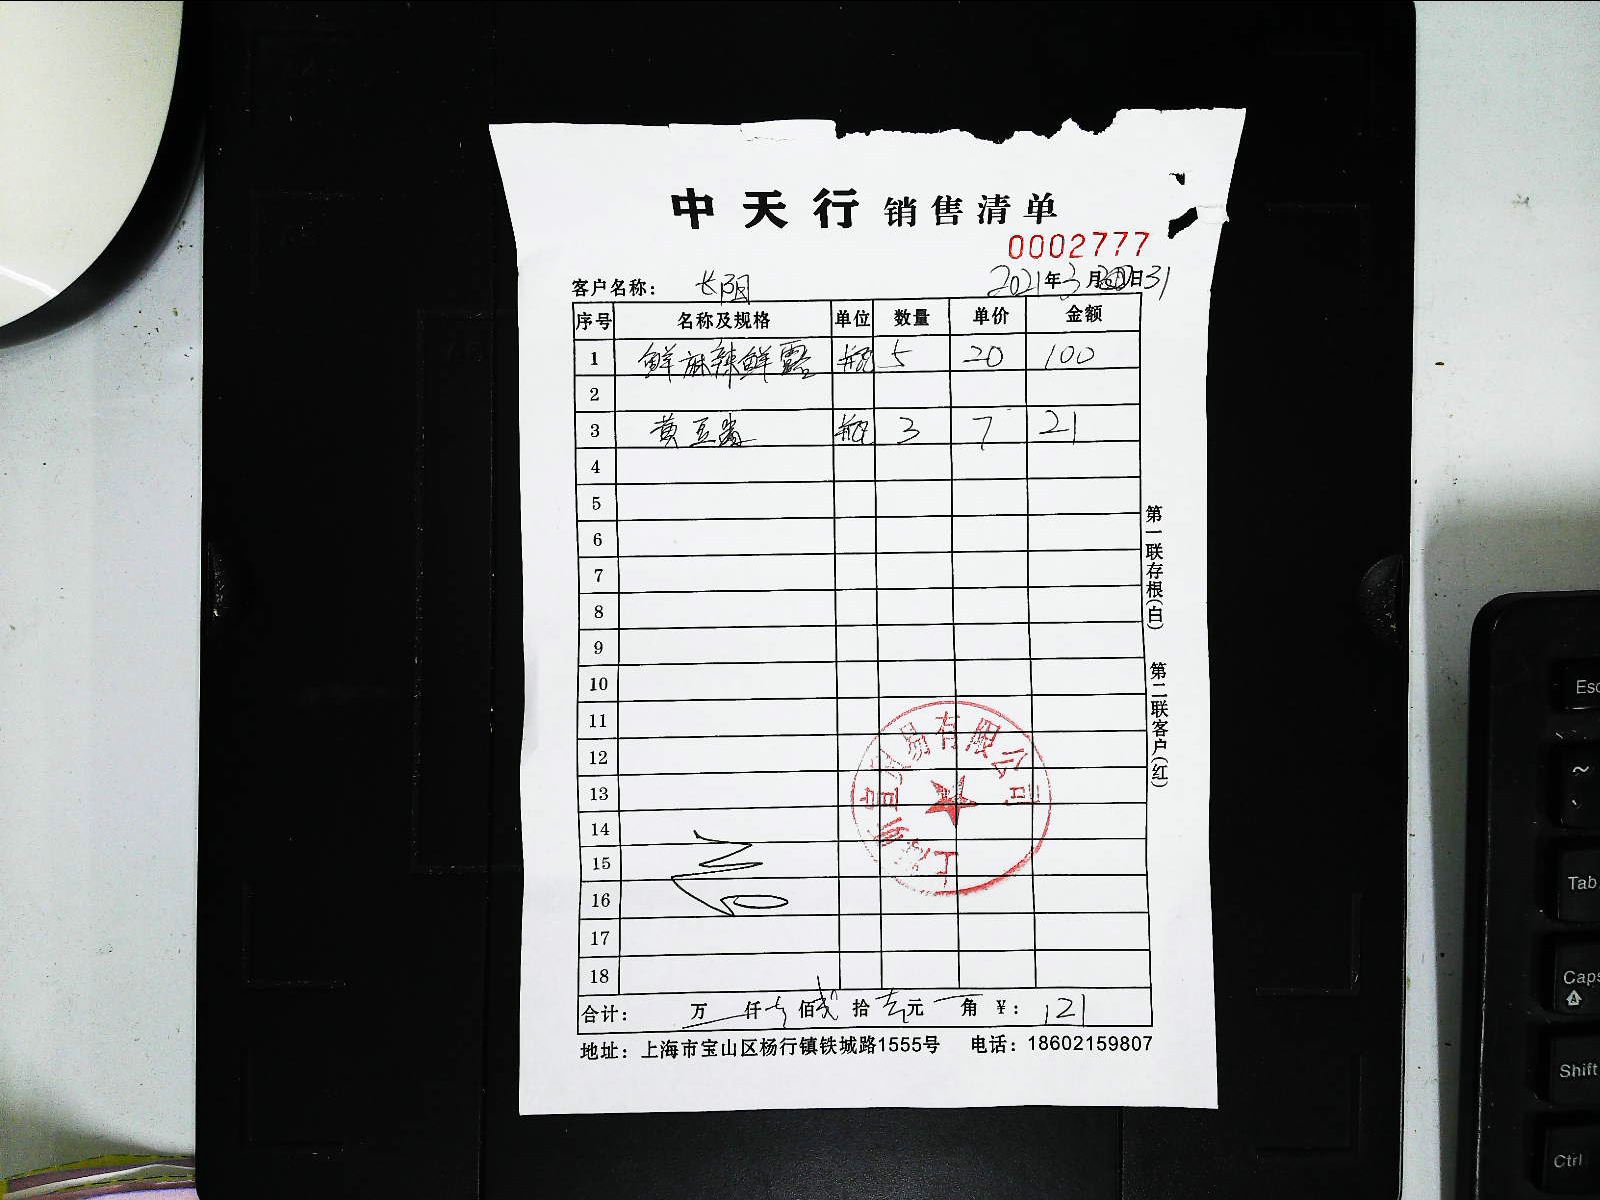 中天行 销售清单
0002777
客户名称： 长阳 2021年3月日31
序号 名称及规格 单位 数量 单价 金额
1 鲜麻辣鲜露 瓶 5 20 100
2
3 黄豆酱 瓶 3 7 21
4
5
6
7
8
9
10
11
12
13
14
15
16
17
18
合计： 万 仟 壹 佰 贰 拾 壹 元 角 ¥： 121
地址：上海市宝山区杨行镇铁城路1555号 电话：18602159807
第一联存根(白) 第二联客户(红)
贸易有限公司
Esc
~
Tab
Caps
Shift
Ctrl